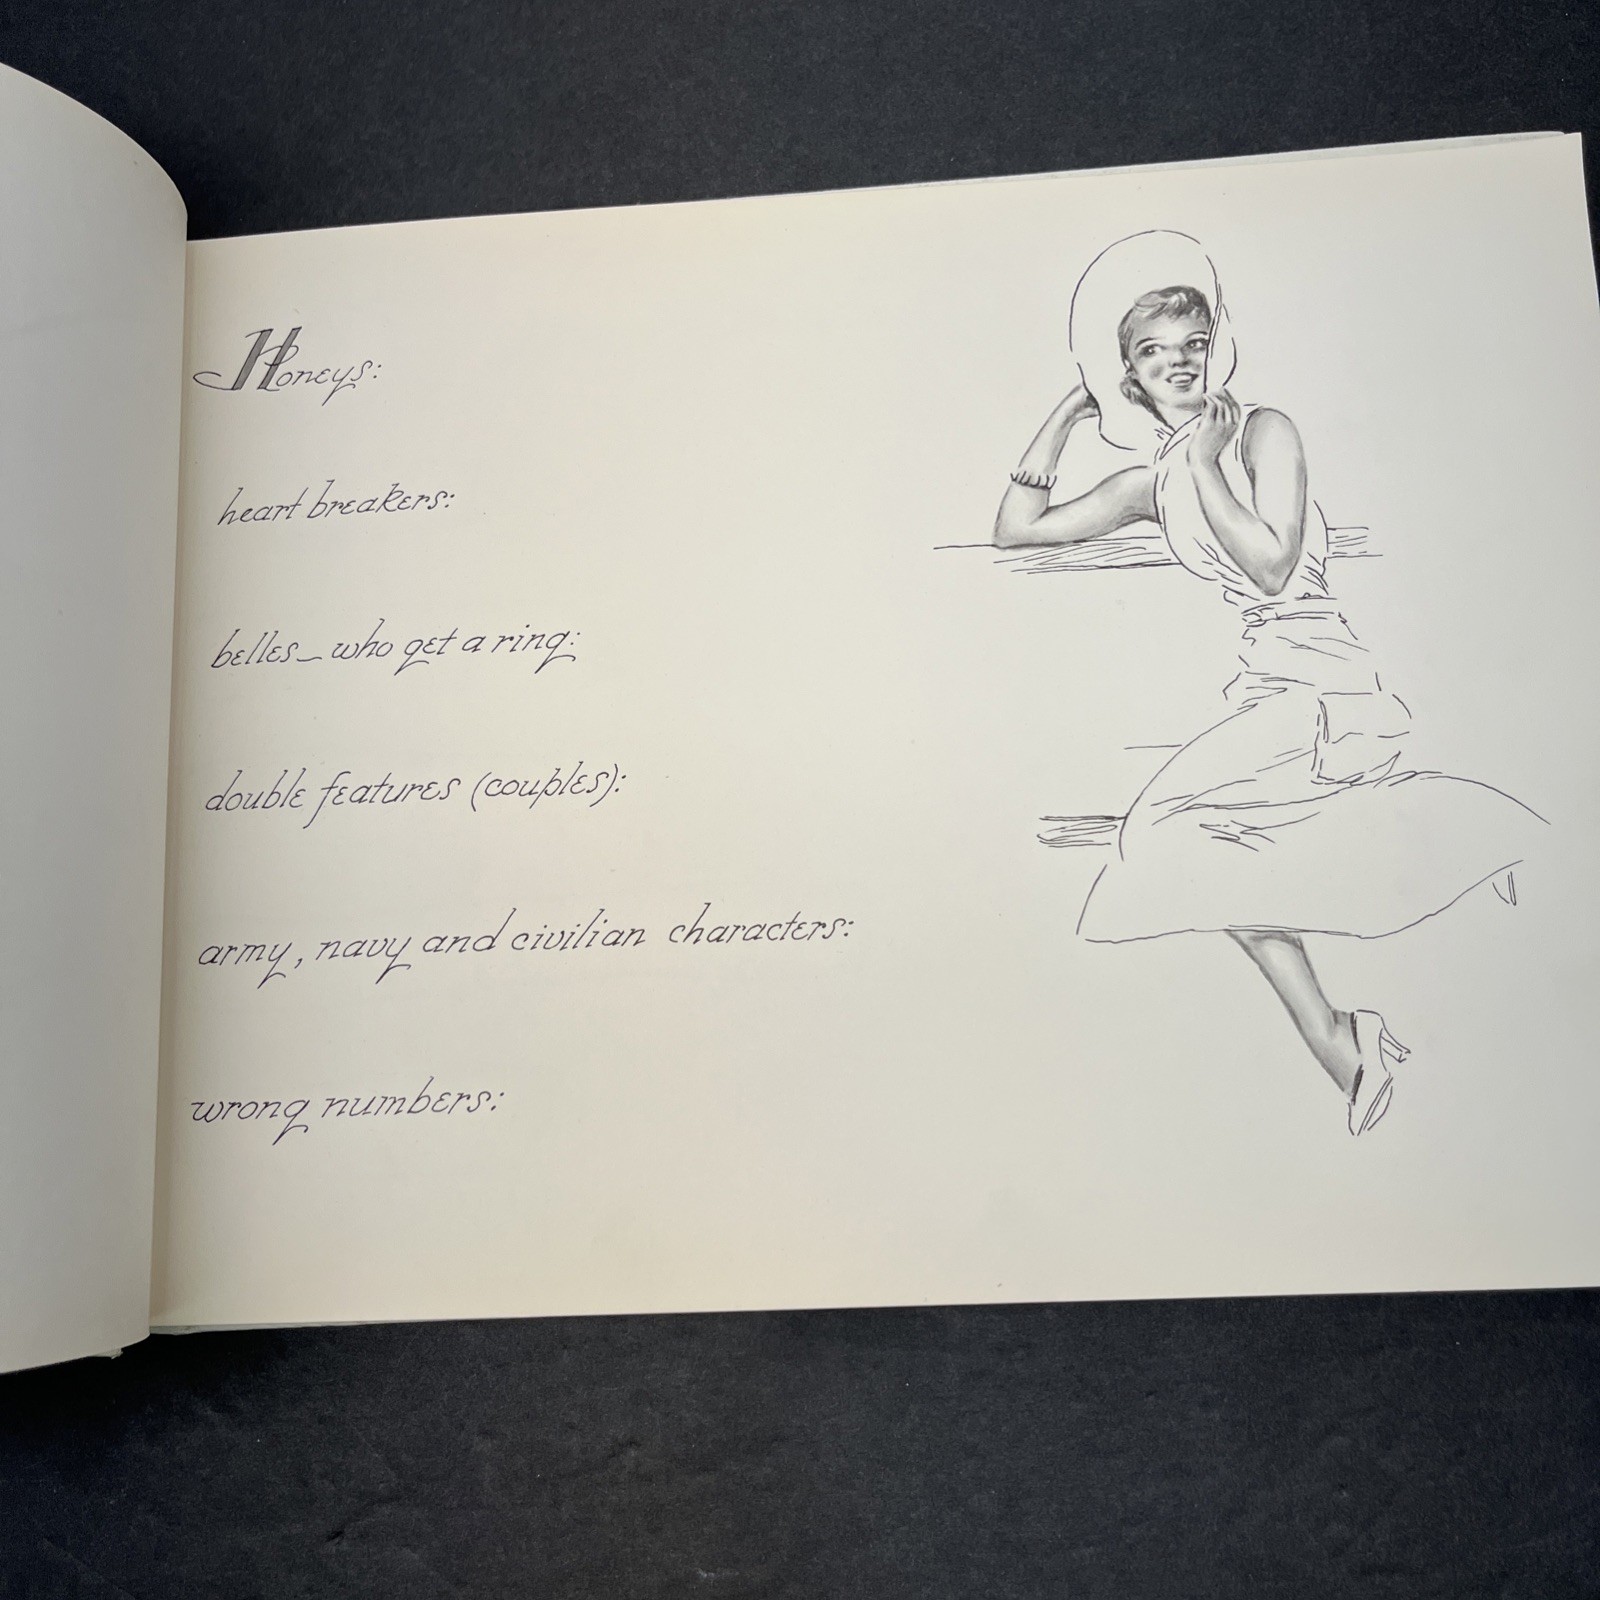 Honeys:
heart breakers:
belles_who get a ring:
double features (couples):
army, navy and civilian characters:
wrong numbers: